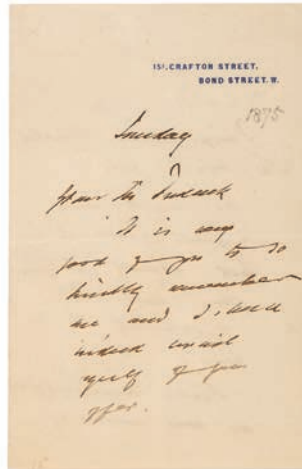 15A, GRAFTON STREET,
BOND STREET. W.
1875
Sunday
Dear Mr
It is very
good of you to so
kindly remember
me and I will
indeed avail
myself of your
offer.